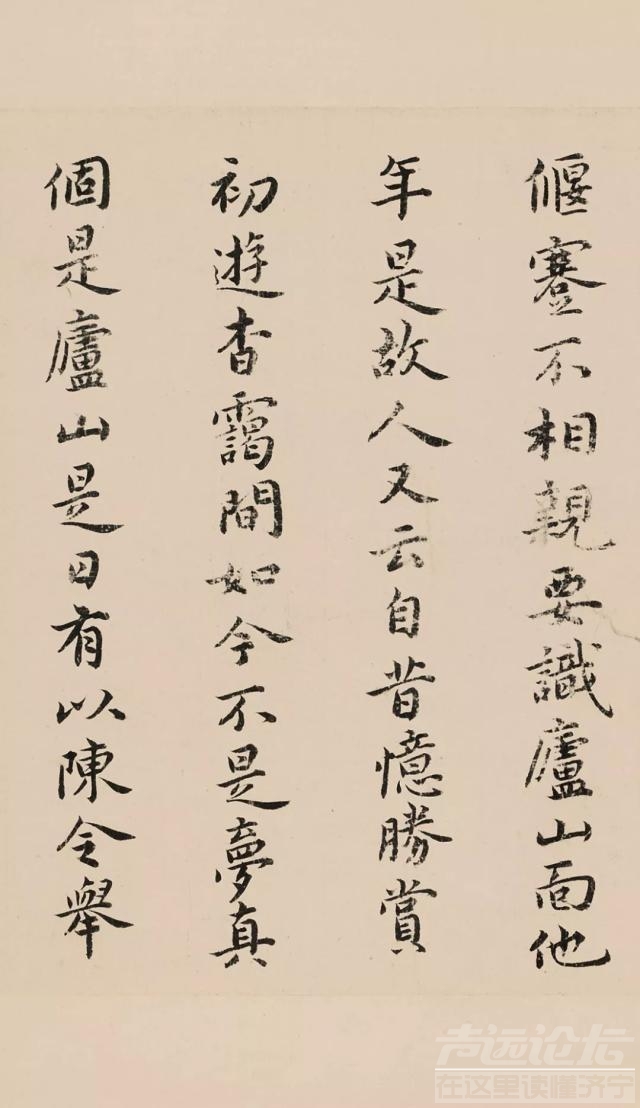 偃蹇不相親要識廬山面他
年是故人又云自昔憶勝賞
初遊杳靄間如今不是夢真
個是廬山是日有以陳令舉
声远论坛
在这里读懂济宁